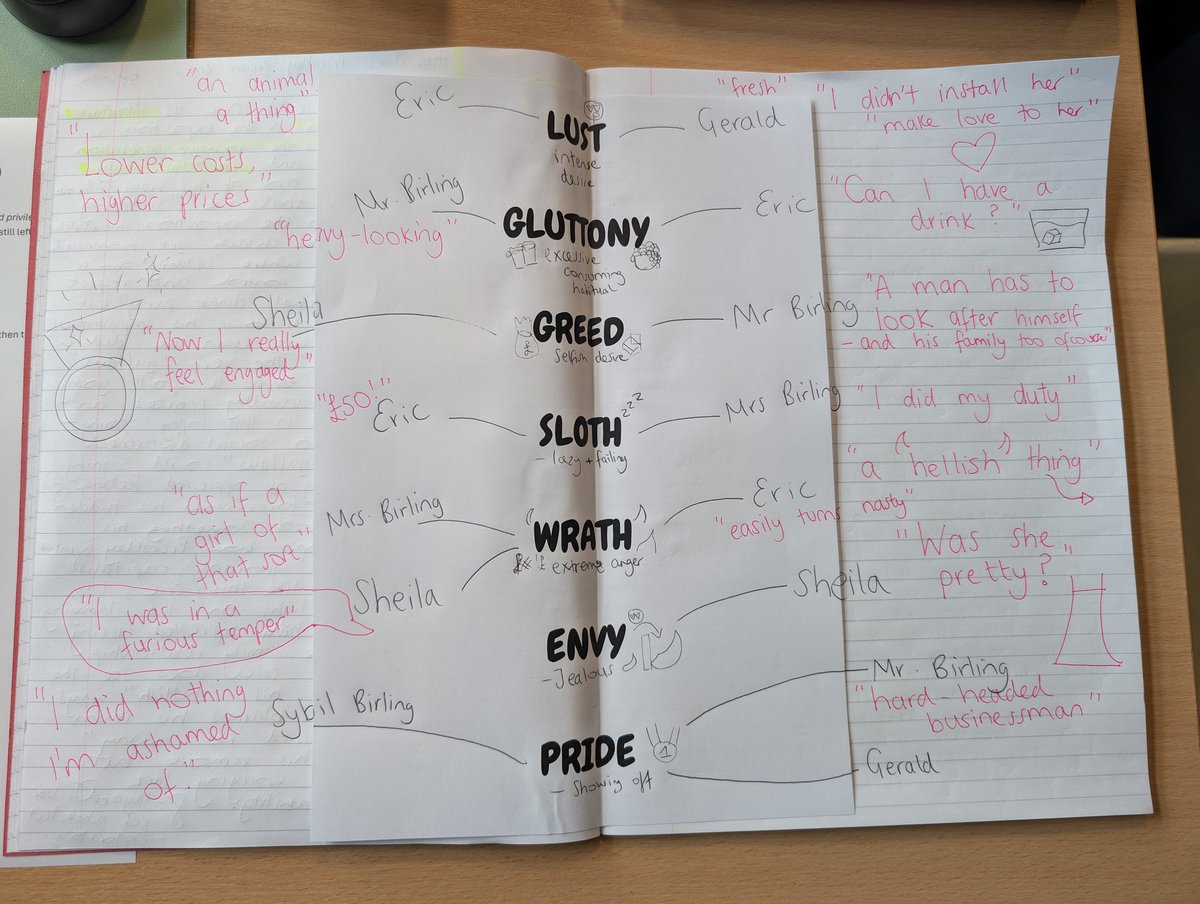 d privile
still left
then t
"an animal
a thing"
"Lower costs,
higher prices"
Eric
LUST
intense
desire
Gerald
"fresh"
"I didn't install her"
"make love to her"
Mr. Birling
"heavy-looking"
GLUTTONY
excessive
consuming
habitual
Eric
"Can I have a
drink?"
Sheila
"Now I really
feel engaged"
GREED
£
Selfish desire
Mr Birling
"A man has to
look after himself
- and his family too ofcourse"
"£50!"
Eric
SLOTH
zzz
- lazy + failing
Mrs Birling
"I did my duty"
Mrs. Birling
"as if a
girl of
that sort"
WRATH
extreme anger
Eric
"easily turns nasty"
"a hellish thing"
Sheila
"I was in a
furious temper"
ENVY
- Jealous
Sheila
"Was she
pretty?"
Sybil Birling
"I did nothing
I'm ashamed
of."
PRIDE
1
- Showing off
Mr. Birling
"hard-headed
businessman"
Gerald